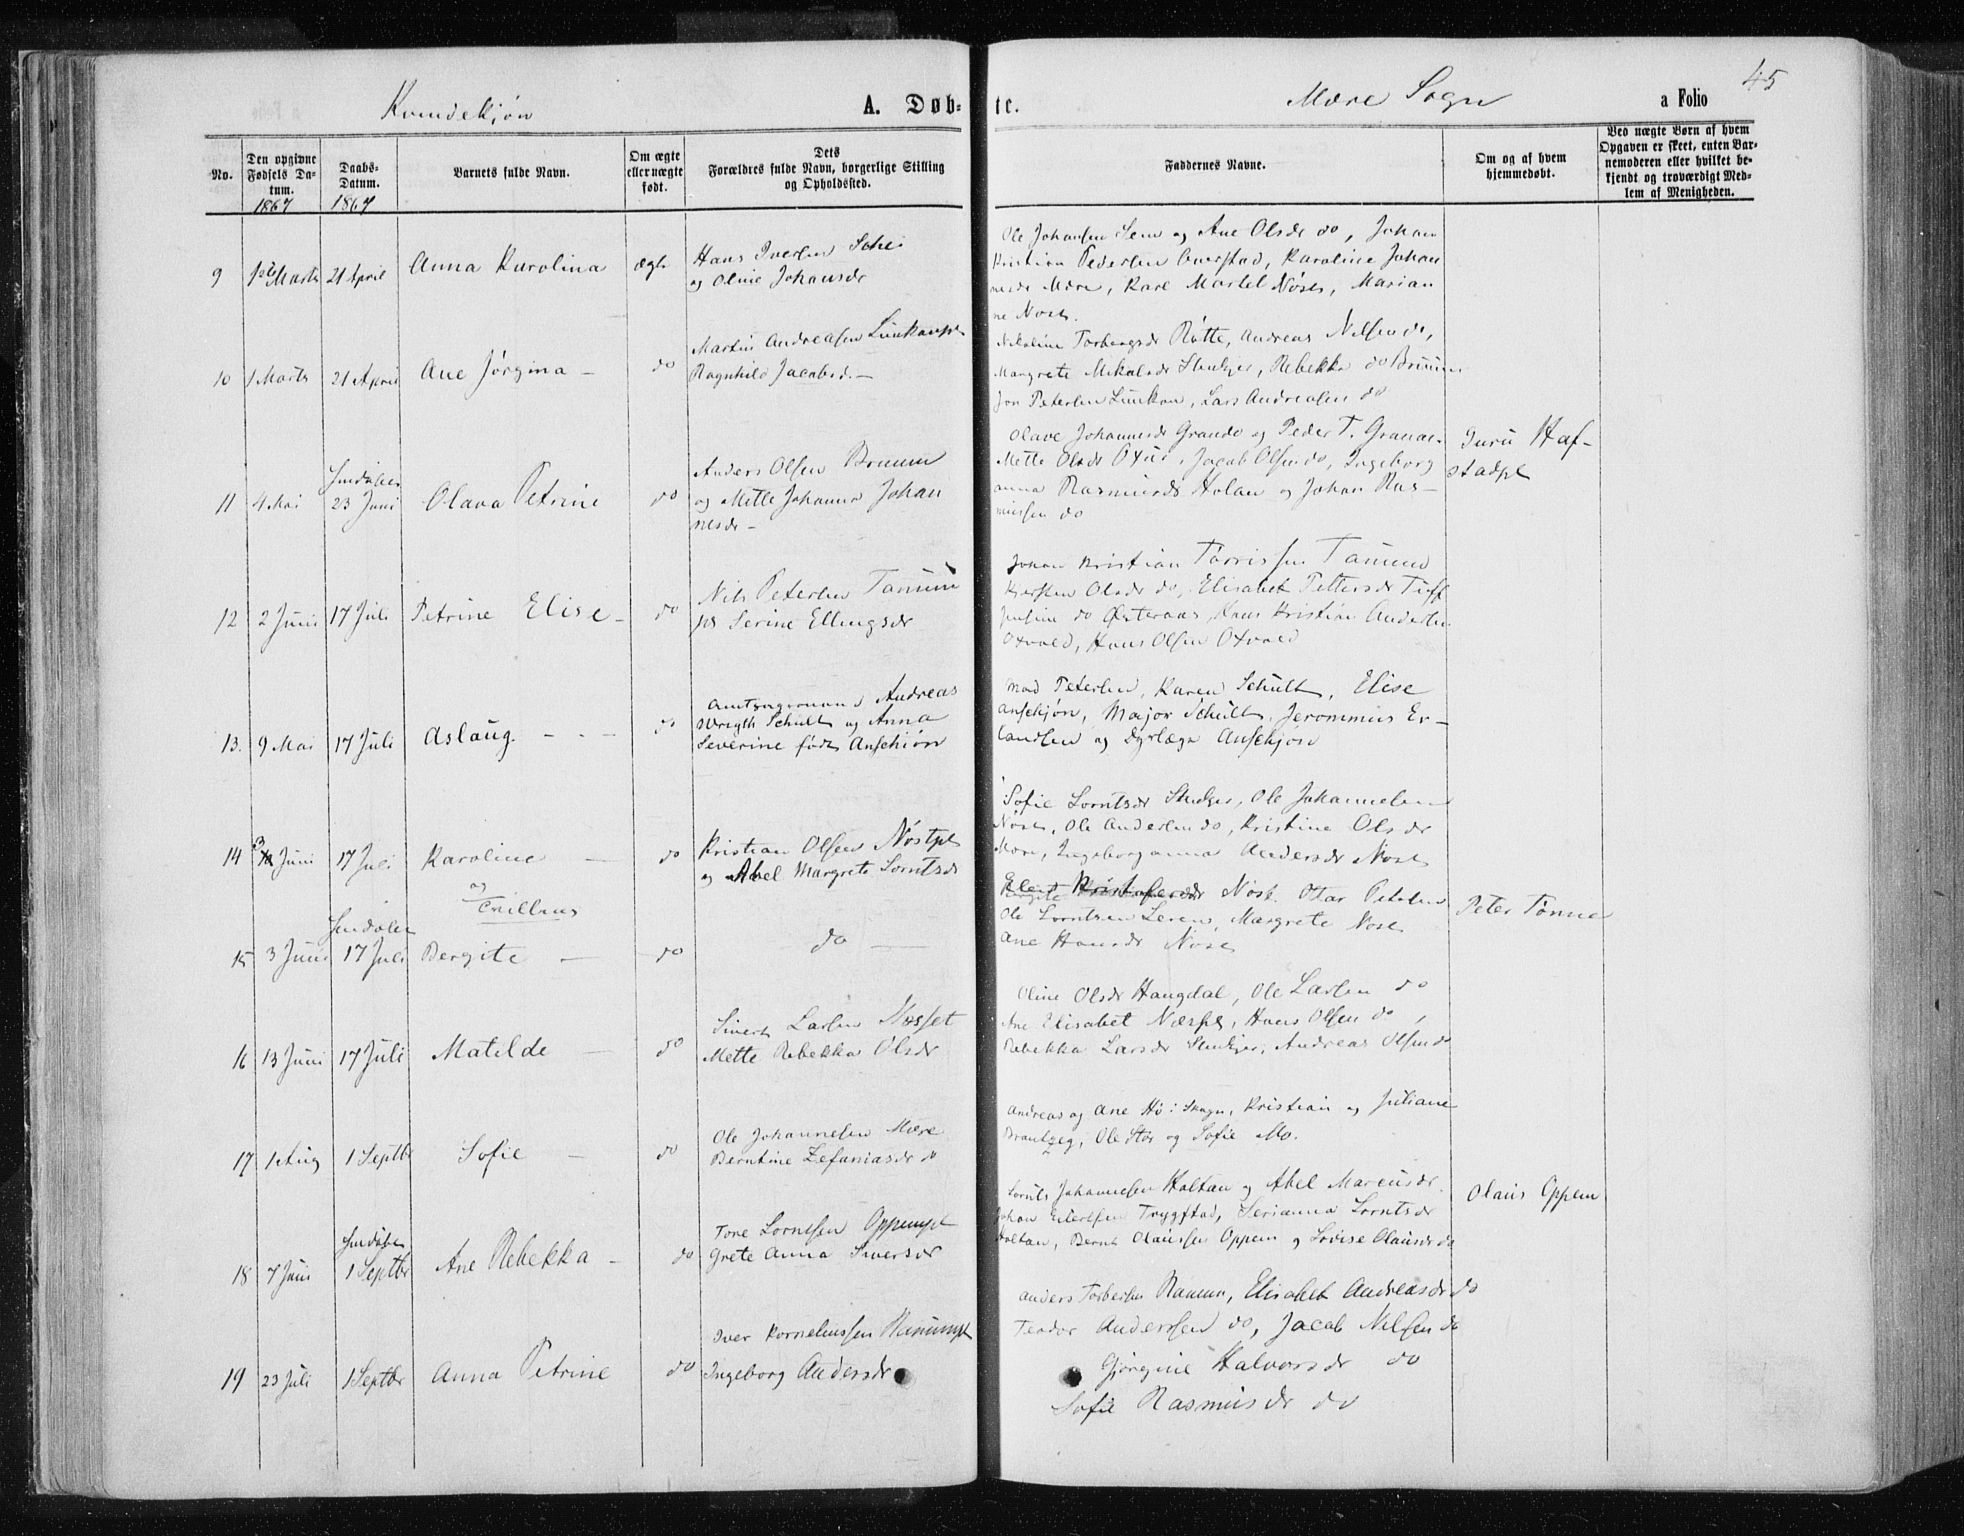 Kvindekjøn
A. Døb-
te.
Mære Sogn
a Folio
45
No.
Den opgivne Fødsels Da-tum.
1867
Daabs-Datum.
1867
Barnets fulde Navn.
Om ægte eller uægte født.
Dets Forældres fulde Navn, borgerlige Stilling og Opholdssted.
Faddernes Navne.
Om og af hvem hjemmedøbt.
Ved uægte Børn af hvem Opgaven er skeet, enten Bar-nemoderen eller hvilket be-kjendt og troværdigt Med-lem af Menigheden.
9 Marts 21 April Anna Karolina ægte
Hans Iversen
og Oline Johansdr
Ole Johansen Sem og Ane Olsdr do, Johan
Kristian Pedersen, Karoline Johan
nesdr Mære, Karl Martel Nøst, Marian
ne Nøst.
10 1 Marts 21 April Ane Jørgina - do
Martin Andreasen
Ragnhild Jacobsd. -
Nikoline Torbergsdr Røtte, Andreas Nilsen do,
Margrete Mikalsdr, Rebekka do
Jon Petersen, Lars Andreasen do
11 4 Mai 23 Juni Olava Petrine do
Anders Olsen
og Mette Johanna Johan
nesdr -
Olave Johannesdr Grande og Peder T.
Mette Olsdr, Jacob Olsen do, Ingeborg
anna Rasmusdr Holan og Johan Ras-
mussen do
Guru Haf-
stadpl
12 2 Juni 17 Juli Petrine Elise - do
Nils Petersen
Serine Ellingsdr
Johan Kristian
Olsdr do, Elisabet Pettersdr
do Østeraas, Hans Kristian Andersen
Oxvold, Hans Olsen Oxvold
13. 9 Mai 17 Juli Aslaug - - - do
Andreas
Schult og Anna
Severine født Ansekjøn
Mad Petersen, Karen Schult, Elise
Ansekjøn, Major Schult, Jerommus Er-
landsen og Dyrlæge Ansekjøn
14 3 Juni 17 Juli Karoline - do
og
Tvillinge
Kristian Olsen Nøstpl
og Abel Margrete Lorntsdr
Sofie Lorntsdr, Ole Johannesen
Nøst, Ole Andersen do, Kristine Olsdr
Mære, Ingeborganna Andersdr Nøst
15 3 Juni 17 Juli Bergite - do
do -
Kristofersdr Nøst. Petersen
Ole Lorntsen, Margrete Nøst
Ane Hansdr Nøst
Peter Tønne
16 13 Juni 17 Juli Matilde - do
Sivert Larsen Næsset
Mette Rebekka Olsdr
Oline Olsdr Haugdal, Ole Larsen do
Ane Elisabet, Hans Olsen do,
Rebekka Larsdr, Andreas Olsen do
17 1 Aug 1 Septbr Sofie - do
Ole Johannesen Mære
Berntine Zefaniasdr do
Andreas og Ane, Kristian og Juliane
, Ole Stor og Sofie Mo.
18 7 Juni 1 Septbr Ane Rebekka - do
Tore Lorntsen Oppempl
Grete Anna Siversdr
Lornts Johannesen Holtan og Abel Marcusdr.
Johan Trygstad, Serianna Lorntsdr
Holtan, Bernt Olaussen Oppem og Lovise Olausdr do
Olaus Oppem
19 23 Juli 1 Septbr Anna Petrine do
Iver Korneliussen
Ingeborg Andersdr
Anders, Elisabet Andreasdr do
Teodor Anderssen do, Jacob Nilsen do
Gjørgine Halvorsdr do
Sofie Rasmusdr do